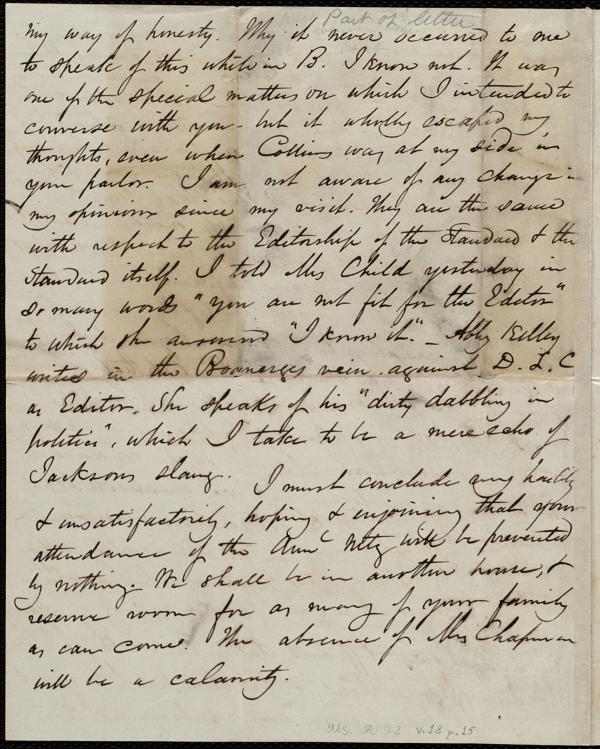 Part of letter
my way of honesty. Why it never occurred to me
to speak of this while in B. I know not. It was
one of the special matters on which I intended to
converse with you - but it wholly escaped my
thoughts, even when Collins was at my side in
your parlor. I am not aware of any change in
my opinions since my visit. They are the same
with respect to the Editorship of the Standard & the
Standard itself. I told Mrs Child yesterday in
so many words "you are not fit for the Editor"
to which she answered "I know it." - Abby Kelley
writes in the Boanerges vein against D. L. C
as Editor. She speaks of his "dirty dabbling in
politics", which I take to be a mere echo of
Jacksons slang. I must conclude very hastily
& unsatisfactorily, hoping & enjoining that your
attendance of the Annl Mtg will be prevented
by nothing. We shall be in another house, &
reserve room for as many of your family
as can come. The absence of Mrs Chapman
will be a calamity.
Ms. A 9.2 v.18 p.15